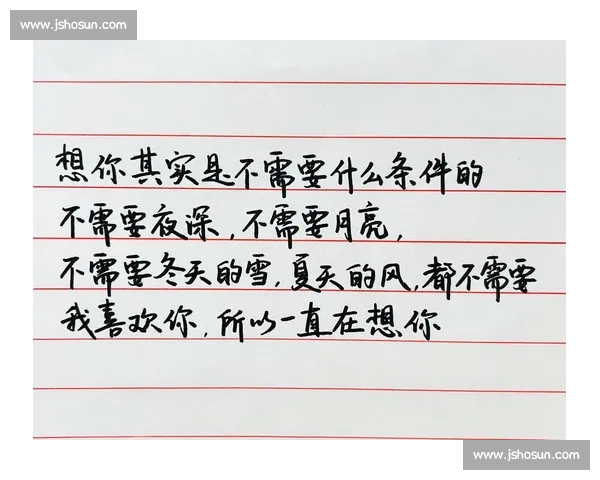 www.jshosun.com
想你其实是不需要什么条件的
不需要夜深,不需要月亮,
不需要冬天的雪,夏天的风,都不需要
我喜欢你,所以一直在想你
www.jshosun.com